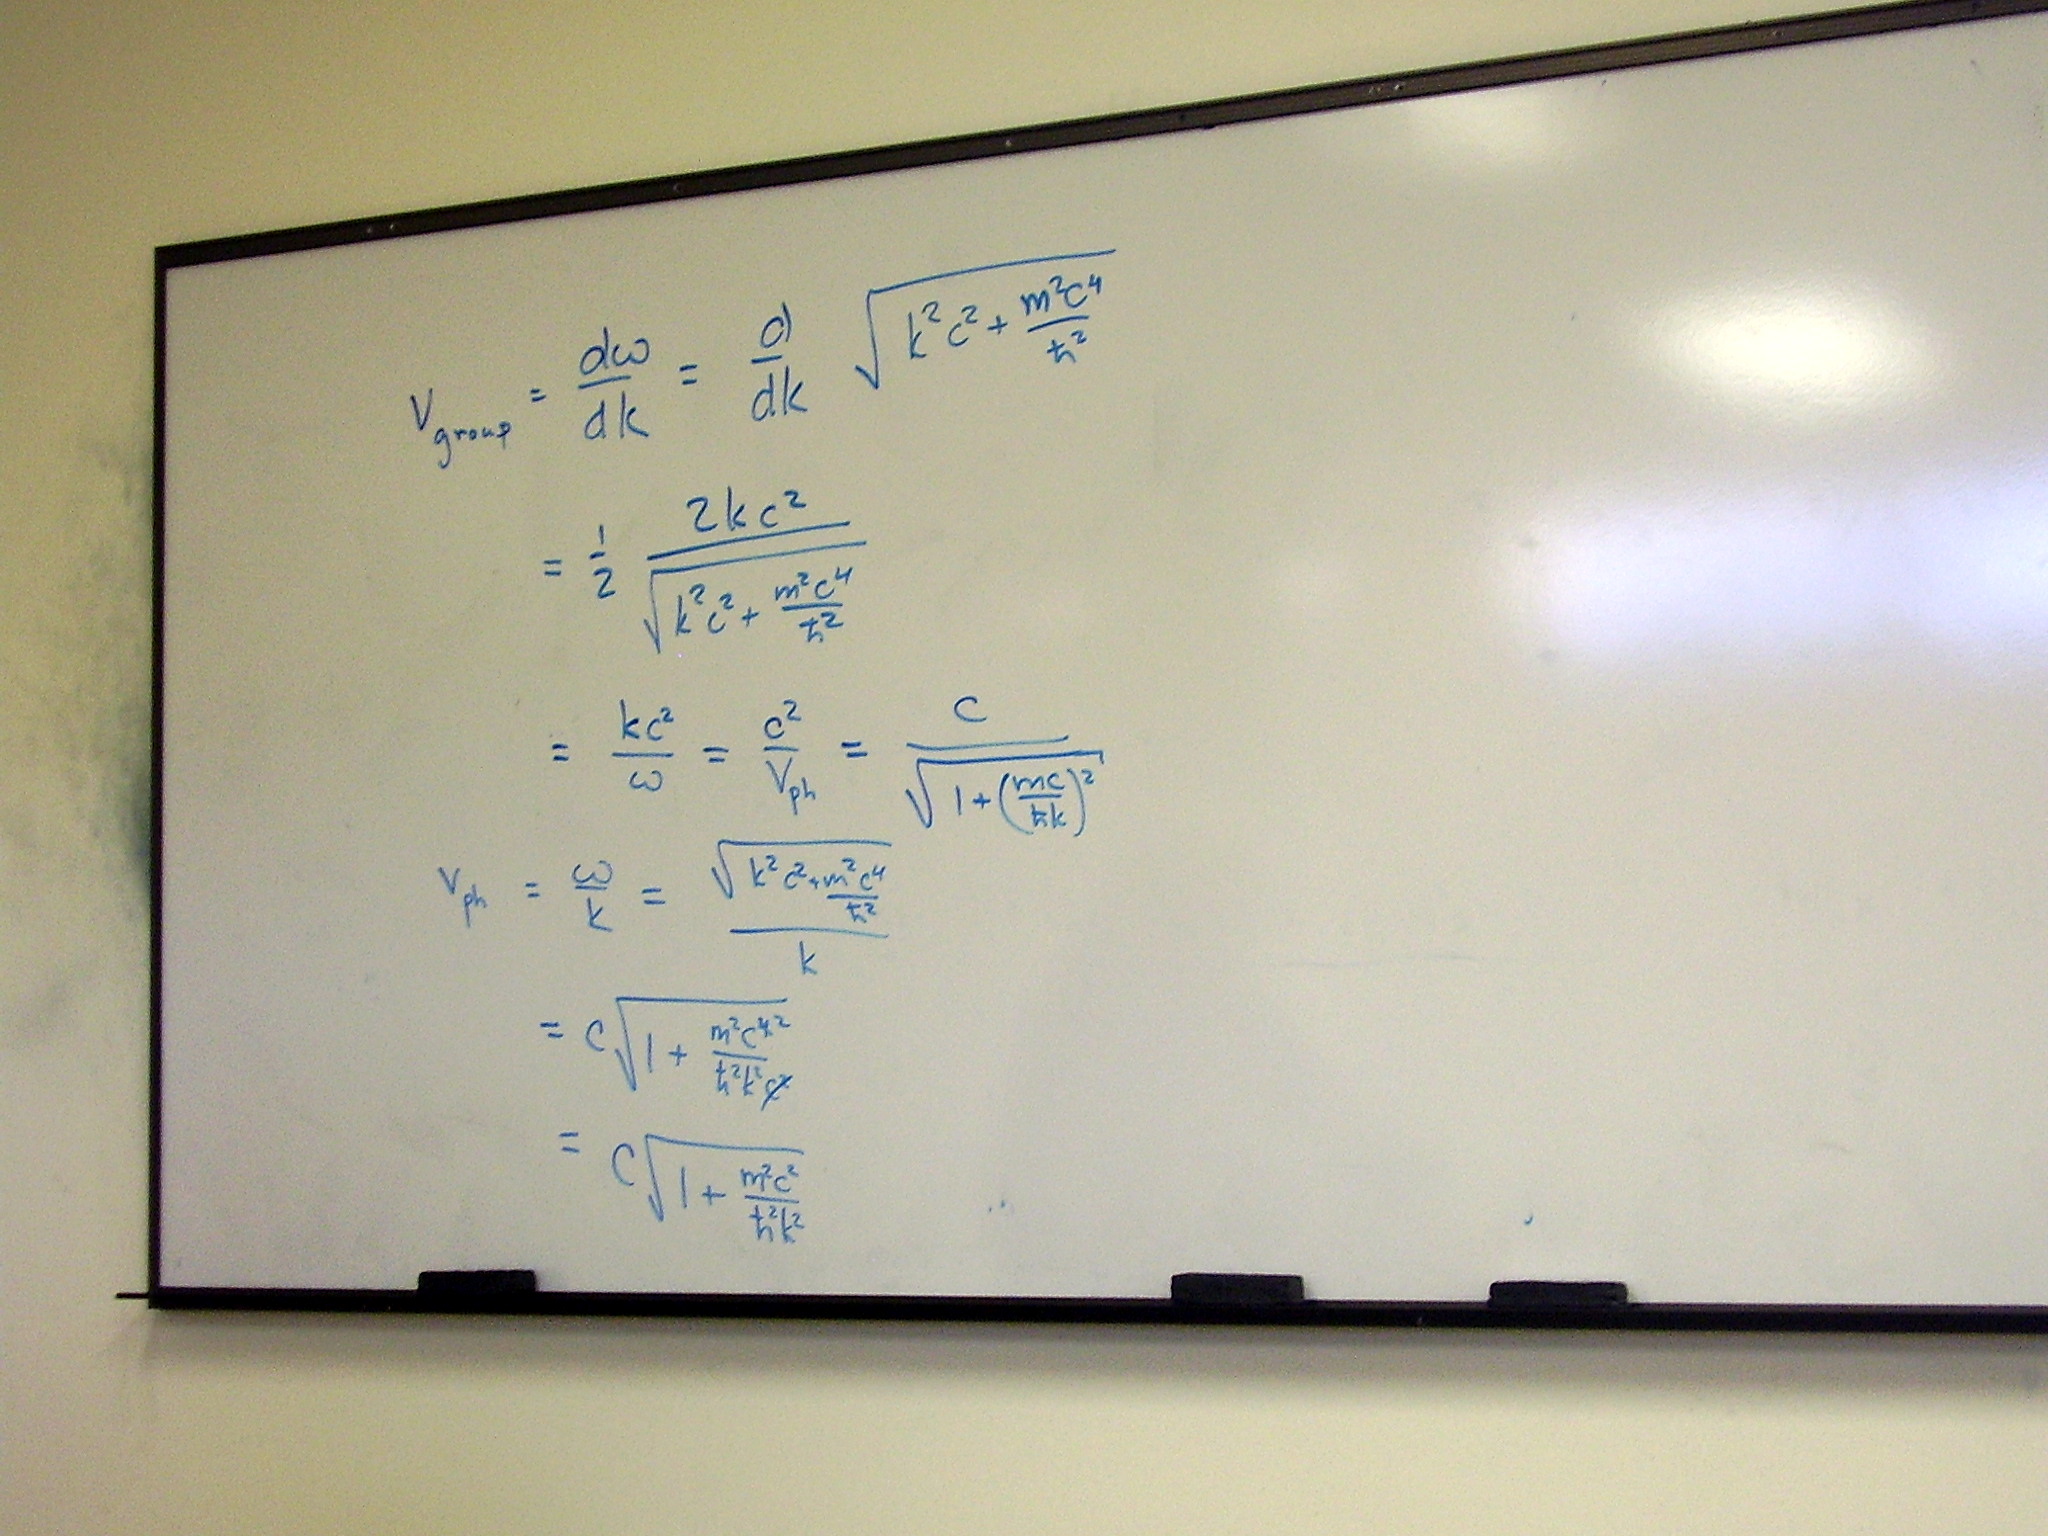 V_group = dω/dk = d/dk √(k²c² + m²c⁴/ħ²)
= 1/2 2kc²/√(k²c² + m²c⁴/ħ²)
= kc²/ω = c²/V_ph = c/√(1 + (mc/ħk)²)
V_ph = ω/k = √(k²c² + m²c⁴/ħ²)/k
= c√(1 + m²c⁴̸ ²/ħ²k²c̸²)
= c√(1 + m²c²/ħ²k²)